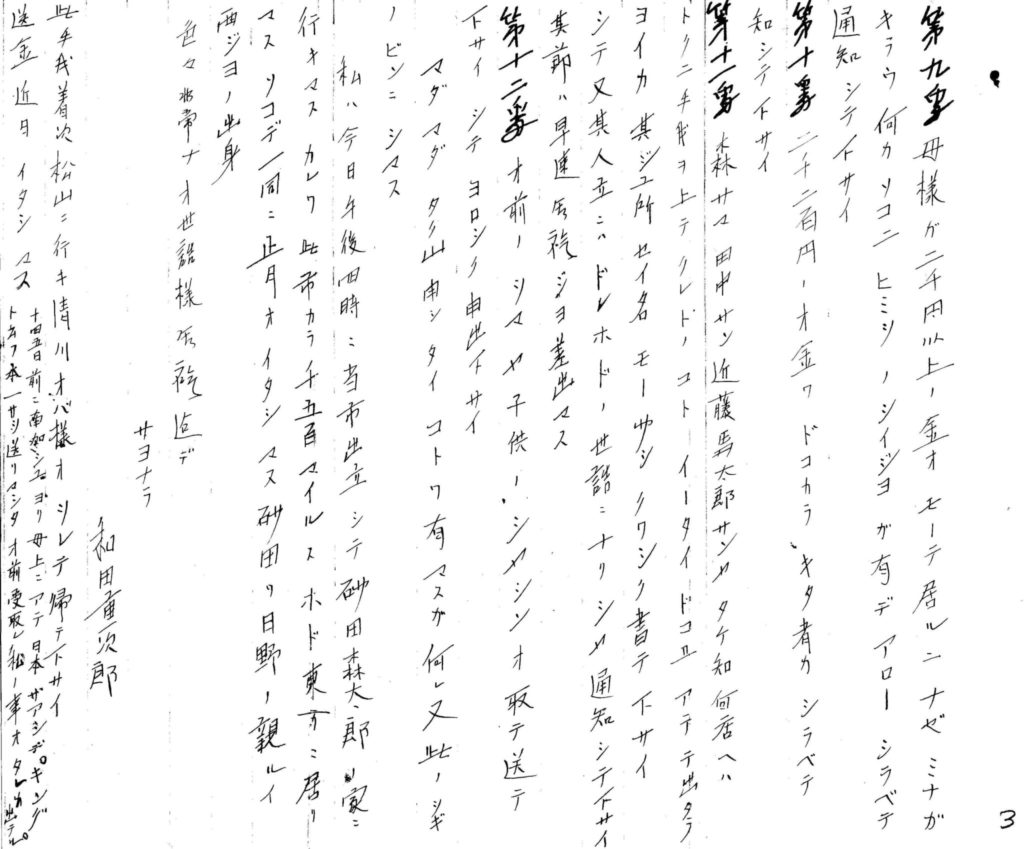 第九番 母様ガ二千円以上ノ金オモーテ居ルニナゼミナガ
キラウ何カソコニヒミツノシイジヨガ有デアローシラベテ
通知シテ下サイ
第十番 二千二百円ノオ金ワドコカラキタ者カシラベテ
知シテ下サイ
第十一番 森サマ田中サン近藤馬太郎サンヤタケ知何店ヘハ
トクニ手ガヲ上テクレドノコトイータイドコエアテテ出タラ
ヨイカ其ジユ所セイ名モーサシクワシク書テ下サイ
シテ又其人立ニハドレホドノ世話ニナリシヤ通知シテ下サイ
其節ハ早速御礼ジヨ差出マス
第十二番 オ前ノシマヤ子供ノシヤシンオ取テ送テ
下サイシテヨロシク申出下サイ
マダマダタク山申シタイコトワ有マスガ何レ又此ノシギ
ノビンニシマス
私ハ今日午後四時ニ当市出立シテ砂田森太郎ガ家ニ
行キマスカレワ此市カラ千五百マイルスホド東方ニ居リ
マスソコデ一同ニ正月オイタシマス砂田ワ日野ノ親ルイ
西ジヨノ出身
色々非常ナオ世話様御礼迄デ
サヨナラ
和田重次郎
此手我着次松山ニ行キ清川オバ様オツレテ帰テ下サイ
送金近日イタシマス
十四五日前ニ南加シユヨリ母上ニアテ日本ザアシデキング
ト云フ本一サシ送リマシタオ前受取レ私ノ事オタレカ出テル。
3